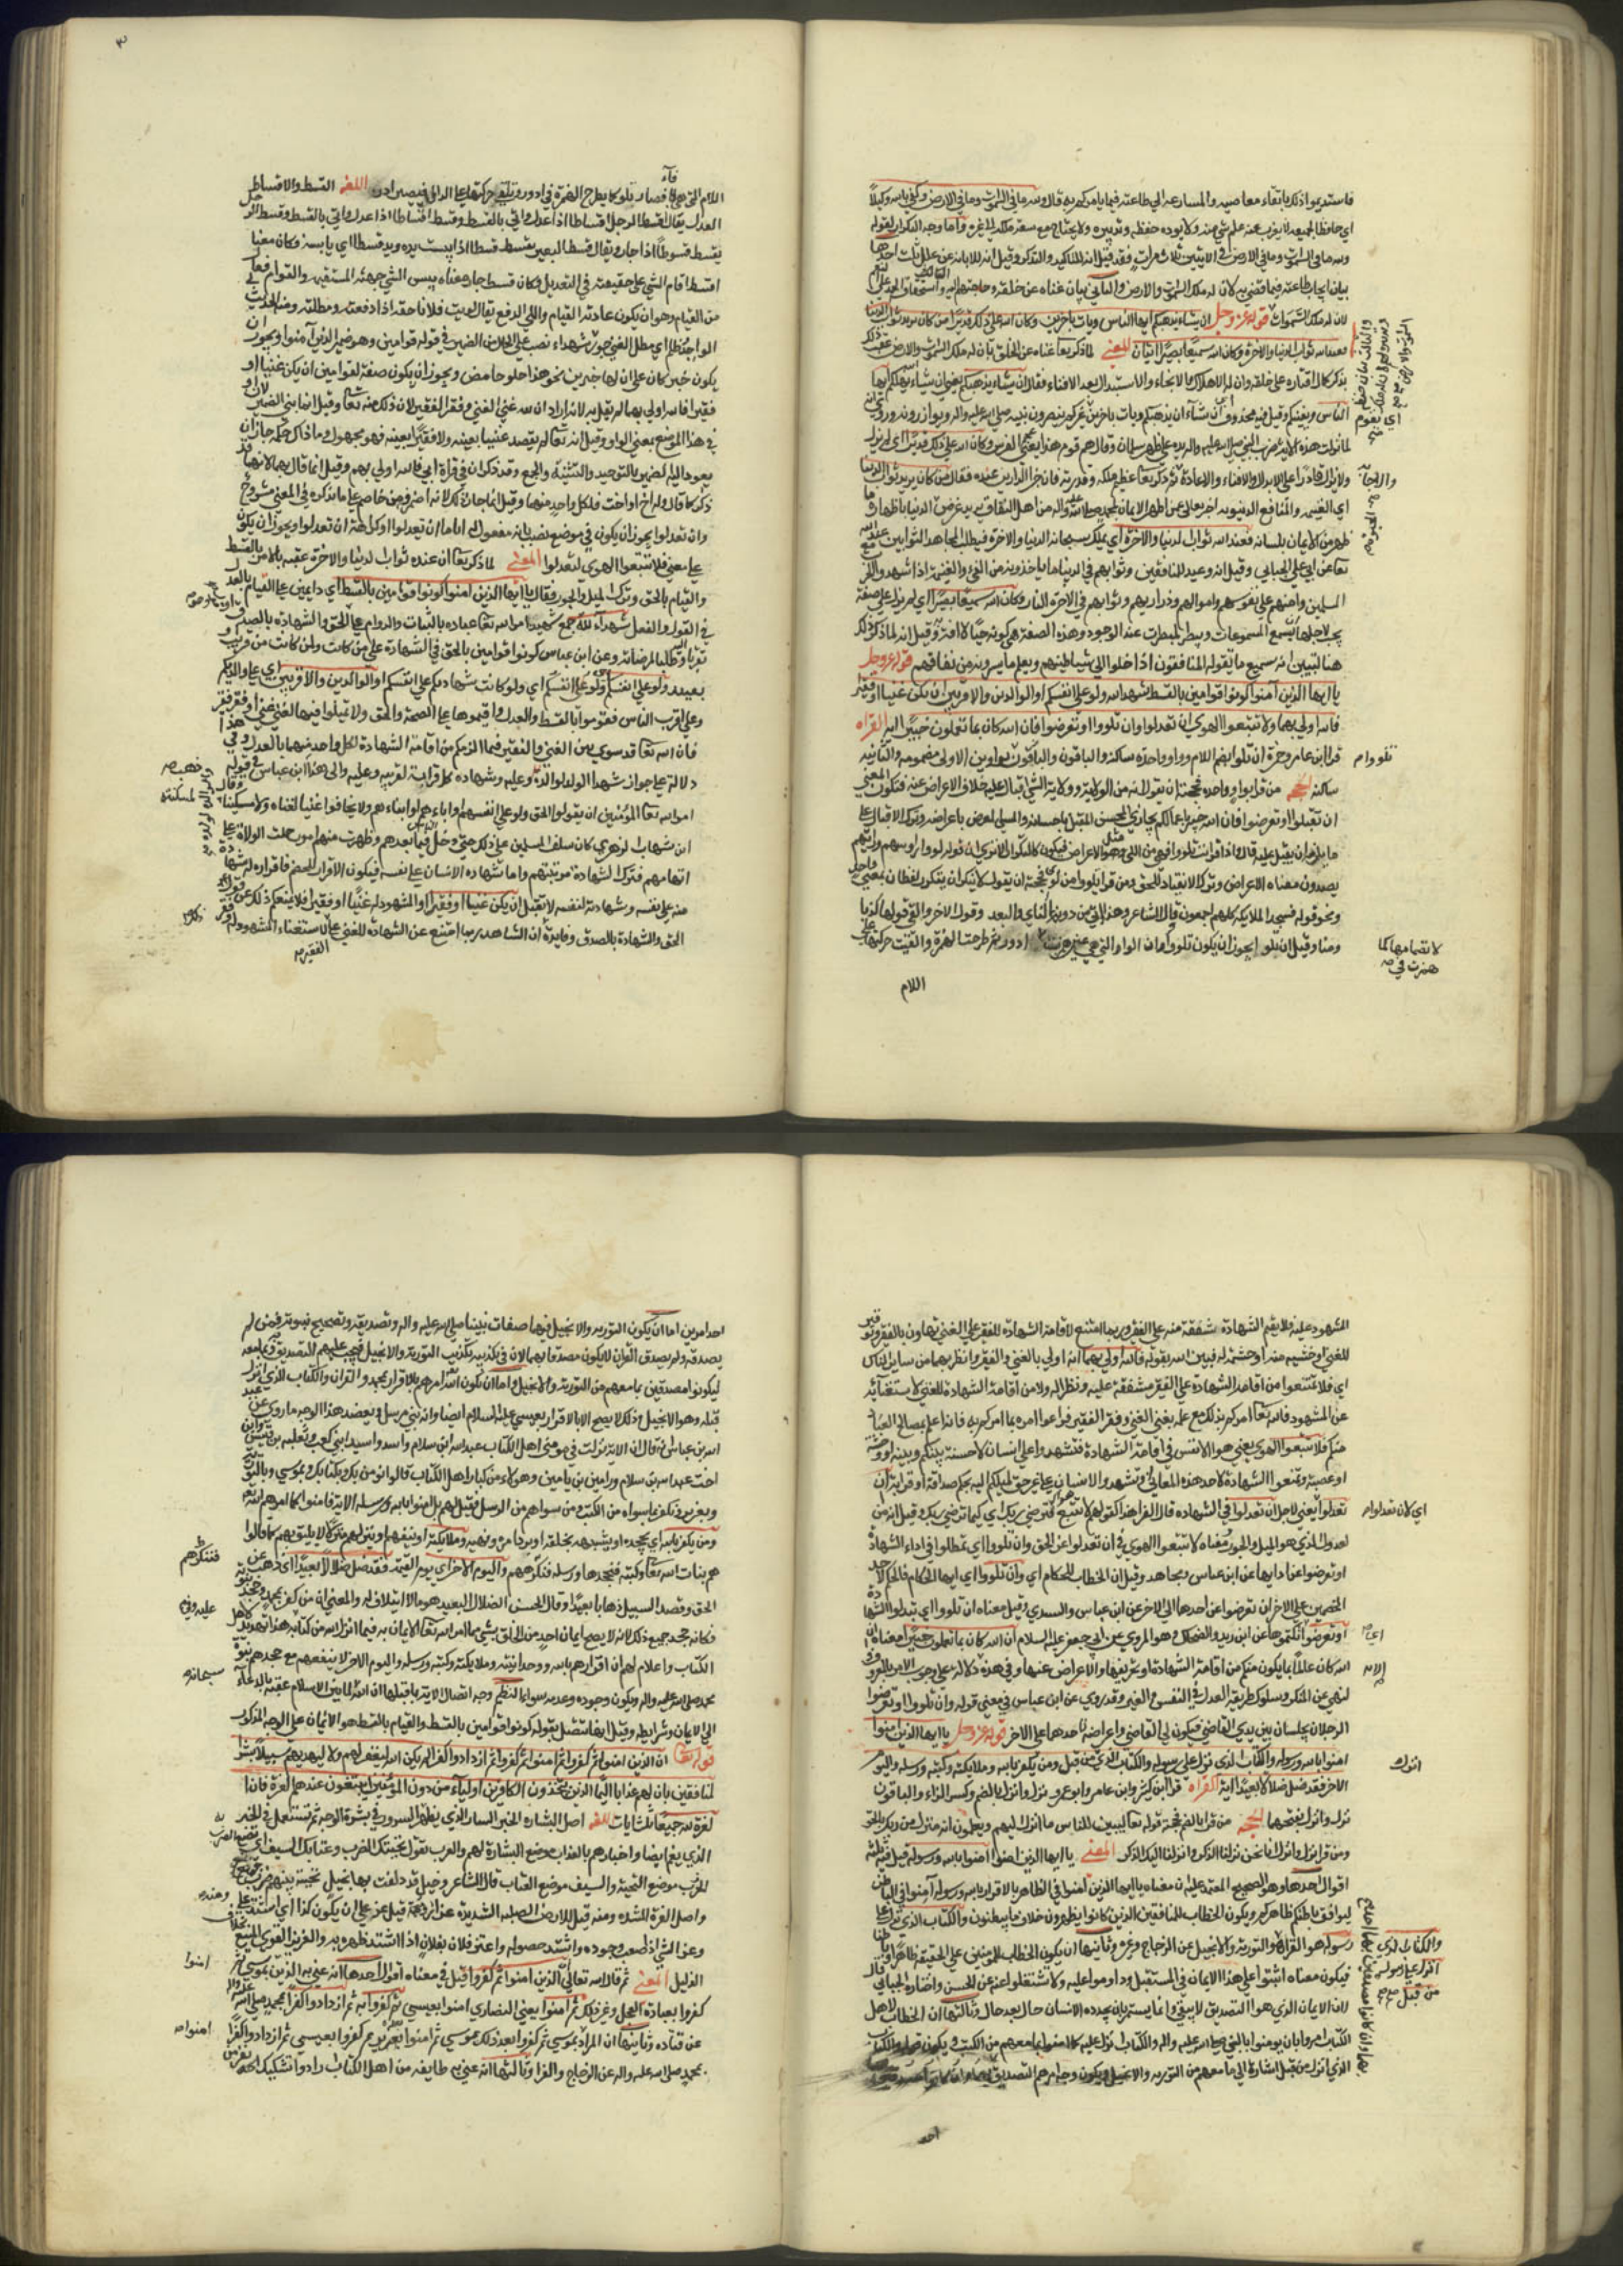 فاستديموا ذلك باتقاء معاصيه والمسارعه الى طاعته فيما يامركم به قال ولله ما في السموات وما في الارض وكفى بالله وكيلا
اي حافظا لجميعه لا يعزب عنه علم شي منه ولا يوده حفظه وتدبيره ولا يحتاج مع سعة ملكه الى غيره واما وجه التكرار لقوله
ولله ما في السموات وما في الارض في الايتين ثلاث مرات فقد قيل انه للتاكيد والتذكير وقيل انه للابانه عن علل ثلث احدها
بيان ايجاب طاعته فيما قضى به لان له ملك السموات والارض والثاني بيان غناه عن خلقه وحاجتهم اليه واستحقاقه الحمد على النعم
لان له ملك السموات قوله عز وجل ان يشاء يذهبكم ايها الناس ويات باخرين وكان الله على ذلك قديرا من كان يريد ثواب الدنيا
فعند الله ثواب الدنيا والاخرة وكان الله سميعا بصيرا ايتان المعنى لما ذكر تعا غناه عن الخلق بان له ملك السموات والارض عقب ذلك
بذكر كمال اقتداره على خلقه وان له الاهلاك والانجاء والاستبدال بعد الافناء فقال ان يشاء يذهبكم يعني ان يشاء يهلككم ايها
الناس ويفنيكم وقيل فيه محذوف اي ان شاء ان يذهبكم ويات باخرين غيركم ينصرون نبيه صلى الله عليه واله ويوازرونه وروي انه
لما نزلت هذه الاية ضرب النبي صلى الله عليه واله يده على ظهر سلمان وقال هم قوم هذا يعني عجم الفرس وكان الله على ذلك قديرا اي لم يزل
ولا يزال قادرا على الابدال والافناء والاعادة ثم ذكر تعا عظيم ملكه وقدرته فان جزا الدارين عنده فقال من كان يريد ثواب الدنيا
اي الغنيمه والمنافع الدنيويه اخبر تعالى عن اظهر الايمان بمحمد صلى الله عليه واله من اهل النفاق يريد عرض الدنيا باظهار ما
يظهر من الايمان بلسانه فعند الله ثواب الدنيا والاخرة اي يملك سبحانه الدنيا والاخرة فيطلب المجاهد الثوابين عند الله
تعا عن ابي علي الجبائي وقيل انه وعيد للمنافقين وثوابهم في الدنيا ما ياخذونه من الفيء والغنيمة اذا شهدوا مع
المسلمين وامنهم على نفوسهم واموالهم وذراريهم وثوابهم في الاخرة النار وكان الله سميعا بصيرا اي لم يزل على صفة
يجب لاجلها ان يسمع المسموعات ويبصر المبصرات عند الوجود وهذه الصفة هي كونه حيا لا افة به وقيل انه لما ذكر ذلك
هنا لتبيين انه سميع ما يقوله المنافقون اذا خلوا الى شياطينهم ويعلم ما يسرونه من نفاقهم قوله عز وجل
يا ايها الذين آمنوا كونوا قوامين بالقسط شهداء لله ولو على انفسكم او الوالدين والاقربين ان يكن غنيا او فقيرا
فالله اولى بهما ولا تتبعوا الهوى ان تعدلوا وان تلووا او تعرضوا فان الله كان بما تعملون خبيرا ايه القراه
قرا ابن عامر وحمزة ان تلوا بضم اللام وواو واحدة ساكنة والباقون بواوين الاولى مضمومه والثانيه
ساكنه الحجه من قرا بواو واحده فحجته ان يقول انه من الولاية وولاية الشي اقبال عليه خلاف الاعراض عنه فتكون المعنى
ان تقبلوا او تعرضوا فان الله خبير باعمالكم يجازي المحسن المقبل باحسانه والمسي المعرض باعراضه وترك الاقبال على
ما يلزمه ان يقبل عليه قال واذا قرات تلووا فهي من اللي وهو مثل الاعراض فيكون كالتكرار الا ترى ان قوله لووا رؤسهم ورايتهم
يصدون معناه الاعراض وترك الانقياد للحق ومن قرا بلووا من لوى فحجته ان يقول لا ينكر ان يتكرر لفظان بمعنى واحد
ونحو قوله فسجد الملائكه كلهم اجمعون قال الشاعر وهند اتى من دونها الناي والبعد وقول الاخر والقى قولها كذبا
ومينا وقيل ان تلو ايجوز ان يكون تلووا وان الواو التي هي عين همزت ادور ثم طرحت الهمزة والقيت حركتها على
اللام
تلووا م
لانضمامها كما
همزت في
القسط والاقساط
اللام التي هي فاء فصار تلوا كما يطرح الهمزة في ادور وتلقى حركتها على الدال فيصير ادر اللغه
العدل يقال اقسط الرجل اقساطا اذا عدل واتى بالقسط وقسط الرجل
يقسط قسوطا اذا جار ويقال قسط البعير يقسط قسطا اذا يبست يده ويد قسطا اي يابسه فكان معنى
اقسط اقام الشي على حقيقته في التعديل وكان قسط جار معناه يبس الشي جهته المستقيمه والقوام فعال
من القيام وهو ان يكون عادته القيام واللي الدفع يقال لويت فلانا حقه اذا دفعته ومطلته ومنه الحديث
الواجد ظلم اي مطل الغني جور شهداء نصب على الحال من الضمير في قوله قوامين وهو ضمير الذين آمنوا ويجوز ان
يكون خبر كان على ان لها خبرين نحو هذا حلو حامض ويجوز ان يكون صفة لقوامين ان يكن غنيا او
فقيرا فالله اولى بهما لم يقل به لانه اراد ان الله غنى الغني وفقر الفقير لان ذلك منه تعا وقيل انما ثنى الضمير لان او
في هذا الموضع بمعنى الواو وقيل انه تعا لم يقصد غنيا بعينه ولا فقيرا بعينه فهو مجهول وما ذاك حكمه جاز ان
يعود اليه الضمير بالتوحيد والتثنية والجمع وقد ذكر ان في قراة ابي فالله اولى بهم وقيل انما قال بهما لانهما قد
ذكرا كما قال وله اخ او اخت فلكل واحد منهما وقيل انما جاز ذلك لانه اضمر فيه من خاصم على ما نذكره في المعنى مشروح
وان تعدلوا يجوز ان يكون في موضع نصب بانه مفعول له اما ان تعدلوا او كراهة ان تعدلوا ويجوز ان يكون
على معنى فلا تتبعوا الهوى لتعدلوا المعنى لما ذكر تعا ان عنده ثواب الدنيا والاخرة عقبه بالامر بالقسط
والقيام بالحق وترك الميل والجور فقال يا ايها الذين امنوا كونوا قوامين بالقسط اي دايمين على القيام بالعدل
في القول والفعل شهداء لله جمع شهيد امر الله تعا عباده بالثبات والدوام على الحق والشهاده بالصدق
تقربا اليه وطلبا لمرضاته وعن ابن عباس كونوا قوامين بالحق في الشهادة على من كانت ولمن كانت من قريب
بعيد ولو على انفسكم اي ولو كانت شهادتكم على انفسكم او الوالدين والاقربين اي على والديكم
وعلى اقرب الناس فقوموا بالقسط والعدل واقيموها على الصحة والحق ولا تميلوا فيها لغنى غني او فقر فقير
فان الله تعا قد سوى بين الغني والفقير فيما الزمكم من اقامة الشهادة لكل واحد منهما بالعدل وفي هذا
دلالة على جواز شهادة الولد لوالده وعليه وشهاده كل قرابة لقريبه وعليه والى هذا ابن عباس في قوله
امر الله تعا المؤمنين ان يقولوا الحق ولو على انفسهم او اباءهم او ابناءهم ولا يحابوا غنيا لغناه ولا مسكينا وقال
ابن شهاب الزهري كان سلف المسلمين على ذلك حتى دخل فيما بعدهم وظهرت منهم امور حملت الولاة على
اتهامهم فتركت شهادة من يتهم واما شهاده الانسان على نفسه فيكون الاقرار للخصم فاقراره له شهادة
منه على نفسه وشهادته لنفسه لا تقبل ان يكن غنيا او فقيرا او المشهود له غنيا او فقيرا فلا يمنعكم ذلك عن قول
الحق والشهادة بالصدق وفايدة ان الشاهد ربما امتنع عن الشهادة للغني على لاستغناء المشهود له وفقر
الفقير
المشهود عليه فلا يقيم الشهادة شفقة منه على الفقير وربما امتنع لاقامة الشهاده للفقير على الغني تهاونا بالفقير وتوقيرا
للغني او خشيه منه او حشمة له فبين الله بقوله فالله اولى بهما انه اولى بالغني والفقير وانظر بهما من ساير الناس
اي فلا تمتنعوا من اقامة الشهادة على الفقير شفقة عليه ونظرا له ولا من اقامة الشهادة للغني لاستغنائه
عن المشهود فالله تعا امركم بذلك مع علمه بغنى الغني وفقر الفقير فراعوا امره بما امركم به فانه اعلم بمصالح العباد
منكم فلا تتبعوا الهوى يعني هوى الانفس في اقامة الشهادة فتشهدوا على انسان لاحنة بينكم وبينه او وحشة
او عصبية وتمنعوا الشهادة لاحد لهذه المعاني وتشهدوا لانسان على غير حق لميلكم اليه بحكم صداقة او قرابة ان
تعدلوا يعني لاجل ان تعدلوا في الشهادة قال الفرا هذا كقولهم لا تتبع هواك لترضي ربك اي كيما ترضي ربك وقيل انه من
العدول الذي هو الميل والجور ومعناه لا تتبعوا الهوى في ان تعدلوا عن الحق وان تلووا اي تمطلوا في اداء الشهادة
او تعرضوا عن ادايها عن ابن عباس ومجاهد وقيل ان الخطاب للحكام اي وان تلووا ايها الحكام في الحكم لاحد
الخصمين على الاخر او تعرضوا عن احدهما الى الاخر عن ابن عباس والسدي وقيل معناه ان تلووا اي تبدلوا الشهادة
او تعرضوا اي تكتموها عن ابن زيد والضحاك وهو المروي عن ابي جعفر عليه السلام ان الله كان بما تعملون خبيرا معناه ان
الله كان عالما بما يكون منكم من اقامة الشهادة او تحريفها والاعراض عنها وفي هذه دلالة على وجوب الامر بالمعروف
والنهي عن المنكر وسلوك طريقة العدل في النفس والغير وقد روي عن ابن عباس في معنى قوله وان تلووا او تعرضوا
الرجلان يجلسان بين يدي القاضي فيكون لي القاضي واعراضه لاحدهما على الاخر قوله عز وجل يا ايها الذين امنوا
امنوا بالله ورسوله والكتاب الذي نزل على رسوله والكتاب الذي من قبل ومن يكفر بالله وملايكته وكتبه ورسله واليوم
الاخر فقد ضل ضلالا بعيدا ايه القراه قرا ابن كثير وابن عامر وابو عمرو نزل وانزل بالضم وكسر الزاء والباقون
نزل وانزل بفتحها الحجه من قرا بالضم فحجته قوله تعا ليبين للناس ما انزل اليهم ويعلمون انه منزل من ربك بالحق
ومن قرا نزل وانزل فانا نحن نزلنا الذكر وانزلنا اليك الذكر المعنى يا ايها الذين امنوا امنوا بالله ورسوله قيل فيه ثلثة
اقوال احدها وهو الصحيح المعتمد عليه ان معناه يا ايها الذين امنوا في الظاهر بالاقرار بالله ورسوله آمنوا في الباطن
ليوافق باطنكم ظاهركم ويكون الخطاب للمنافقين الذين كانوا يظهرون خلاف ما يبطنون والكتاب الذي نزل على
رسوله هو القران والتورية والانجيل عن الزجاج وغيره وثانيها ان يكون الخطاب للمومنين على الحقيقة ظاهرا وباطنا
فيكون معناه اثبتوا على هذا الايمان في المستقبل وداوموا عليه ولا تنتقلوا عنه عن الحسن واختاره الجبائي قال
لان الايمان الذي هو التصديق لا يبقى وانما يستمر بان يجدده الانسان حالا بعد حال وثالثها ان الخطاب لاهل
الكتاب امروا بان يومنوا بالنبي صلى الله عليه واله والكتاب الذي نزل عليه كما امنوا بما معهم من الكتب ويكون قوله والكتاب
الذي انزل من قبل اشارة الى ما معهم من التوريه والانجيل ويكون وجه امرهم بالتصديق بهما وان كانوا مصدقين بهما
احد
اي لان تعدلوا م
انزل
والكتاب الذي
انزل على رسوله
من قبل
احد امرين اما ان يكون التوريه والانجيل فيهما صفات نبينا صلى الله عليه واله وتصديقه وتصحيح نبوته فمن لم
يصدقه ولم يصدق القران لا يكون مصدقا بهما لان في تكذيبه تكذيب التورية والانجيل فيجب عليهم التصديق به وبما معه
ليكونوا مصدقين بما معهم من التورية والانجيل واما ان يكون الله امرهم بالاقرار بمحمد والقران والكتاب الذي انزل
قبله وهو الانجيل وذلك لا يصح الا بالاقرار بعيسى عليه السلام ايضا وانه نبي مرسل ويعضد هذا الوجه ما روي عن عبد
الله بن عباس انه قال ان الاية نزلت في مومني اهل الكتاب عبد الله ابن سلام واسد واسيد ابني كعب وثعلبه بن قيس وابن
اخت عبد الله بن سلام ويامين بن يامين وهولاء من كبار اهل الكتاب قالوا نومن بك وبكتابك وبموسى وبالتورية
وبعزير ونكفر بما سواه من الكتب ومن سواهم من الرسل فقيل لهم بل امنوا بالله ورسله الاية فامنوا كما امرهم الله تعا
ومن يكفر بالله اي يجحده او يشبهه بخلقه او يرد امره ونهيه وملايكته او ينفيهم او ينزلهم منزلة لا يليق بهم كما قالوا
هم بنات الله تعا وكتبه فيجحدها ورسله فينكرهم واليوم الاخر اي يوم القيمة فقد ضل ضلالا بعيدا اي ذهب عن
الحق وقصد السبيل ذهابا بعيدا وقال الحسن الضلال البعيد هو ما لا ائتلاف له والمعنى ان من كفر بمحمد وجحد نبوته
فكانه جحد جميع ذلك لانه لا يصح ايمان احد من الخلق بشي مما امر الله تعا الا بالايمان به فيما انزل الله من كتابه هذا تهديد لاهل
الكتاب واعلام لهم ان اقرارهم بالله ووحدانيته وملايكته وكتبه ورسله واليوم الاخر لا ينفعهم مع جحدهم نبوة
محمد صلى الله عليه واله ويكون وجوده وعدمه سواء النظم وجه اتصال الاية بما قبلها ان الله لما بين الاسلام عقبه بالدعاء
الى الايمان وشرايطه وقيل ايضا تتصل بقوله كونوا قوامين بالقسط والقيام بالقسط هو الايمان على الوجه المذكور
قوله تعا ان الذين امنوا ثم كفروا ثم امنوا ثم كفروا ثم ازدادوا كفرا لم يكن الله ليغفر لهم ولا ليهديهم سبيلا بشر
المنافقين بان لهم عذابا اليما الذين يتخذون الكافرين اولياء من دون المؤمنين ايبتغون عندهم العزة فان ا
لعزة لله جميعا ثلث ايات اللغه اصل البشاره الخبر السار الذي يظهر السرور في بشرة الوجه ثم تستعمل في الخبر
الذي يغم ايضا واخبارهم بالعذاب موضع البشارة لهم والعرب تقول تحيتك الضرب وعتابك السيف اي تضع الضرب
موضع التحية والسيف موضع العتاب قال الشاعر وخيل قد دلفت لها بخيل تحية بينهم ضرب
واصل العزة الشدة ومنه قيل للارض الصلبه الشديدة عزاز ومنه قيل عز علي ان يكون كذا اي اشتد علي
وعز الشي اذا صعب وجوده واشتد حصوله واعتز فلان بفلان اذا اشتد ظهره به والعزيز القوي المنيع بخلاف
الذليل المعنى ثم قال الله تعالى ان الذين امنوا ثم كفروا قيل في معناه اقوال احدها انه عني به الذين بموسى ثم
كفروا بعبادة العجل وغير ذلك ثم امنوا يعني النصارى امنوا بعيسى ثم كفروا به ثم ازدادوا كفرا بمحمد صلى الله عليه واله
عن قتاده وثانيها ان المراد بموسى ثم كفروا بعد ذلك بموسى ثم امنوا بعزير ثم كفروا بعيسى ثم ازدادوا كفرا
بمحمد صلى الله عليه واله عن الزجاج والفرا وثالثها انه عني به طايفه من اهل الكتاب ارادوا تشكيك نفر من
فينكرهم
سبحانه
امنوا
امنوا